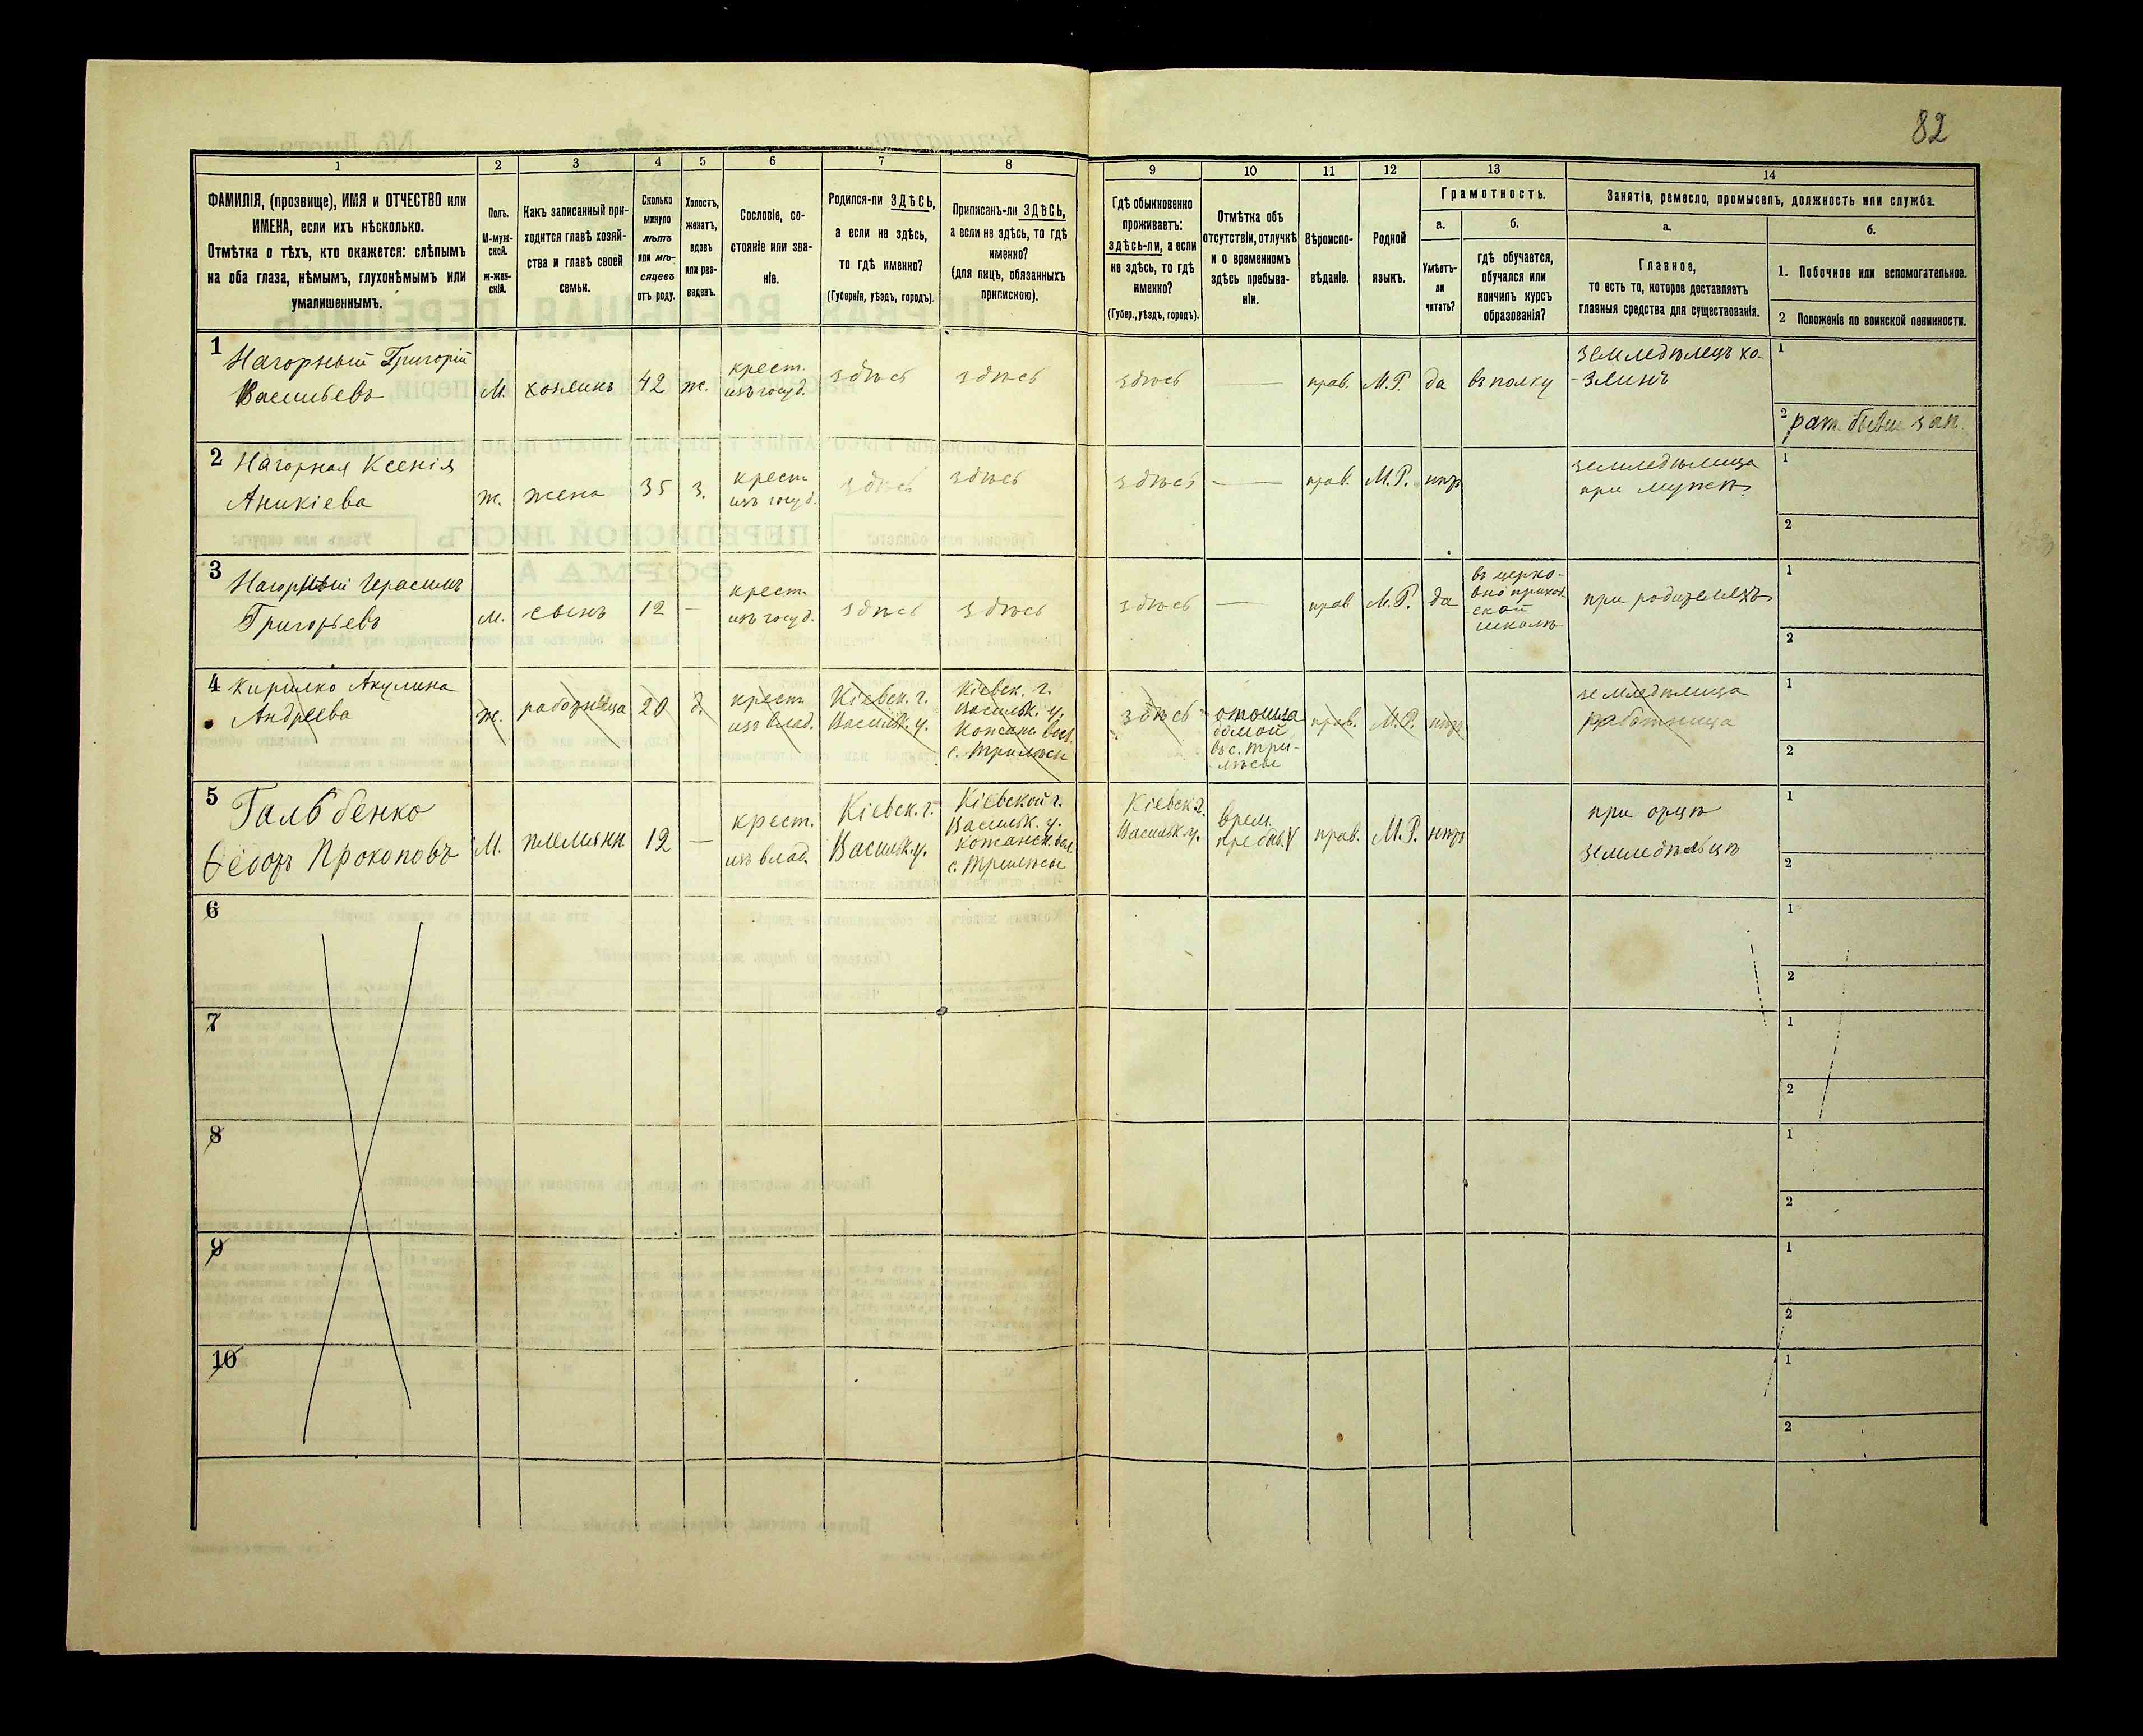 82
1 2 3 4 5 6 7 8 9 10 11 12 13 14
ФАМИЛІЯ, (прозвище), ИМЯ и ОТЧЕСТВО или
ИМЕНА, если ихъ нѣсколько.
Отмѣтка о тѣхъ, кто окажется: слѣпымъ
на оба глаза, нѣмымъ, глухонѣмымъ или
умалишеннымъ.
Полъ.
М-муж-
ской.
ж-жен-
скій.
Какъ записанный при-
ходится главѣ хозяй-
ства и главѣ своей
семьи.
Сколько
минуло
лѣтъ
или мѣ-
сяцевъ
отъ роду.
Холостъ,
женатъ,
вдовъ
или раз-
веденъ.
Сословіе, со-
стояніе или зва-
ніе.
Родился-ли ЗДѢСЬ,
а если не здѣсь,
то гдѣ именно?
(Губернія, уѣздъ, городъ).
Приписанъ-ли ЗДѢСЬ,
а если не здѣсь, то гдѣ
именно?
(для лицъ, обязанныхъ
припискою).
Гдѣ обыкновенно
проживаетъ:
здѣсь-ли, а если
не здѣсь, то гдѣ
именно?
(Губер., уѣздъ, городъ).
Отмѣтка объ
отсутствіи, отлучкѣ
и о временномъ
здѣсь пребыва-
ніи.
Вѣроиспо-
вѣданіе.
Родной
языкъ.
Грамотность.
а.
Умѣетъ-
ли
читать?
б.
гдѣ обучается,
обучался или
кончилъ курсъ
образованія?
Занятіе, ремесло, промыселъ, должность или служба.
а.
Главное,
то есть то, которое доставляетъ
главныя средства для существованія.
б.
1. Побочное или вспомогательное.
2 Положеніе по воинской повинности.
1
Нагорный Григорій
Васильевъ
М.
хозяинъ
42
ж.
крест.
изъ госуд.
здѣсь
здѣсь
здѣсь
—
прав.
М.Р.
да
въ полку
земледѣлецъ хо-
-зяинъ
1
2 рат. бывш зап.
2
Нагорная Ксенія
Аникіева
ж.
жена
35
з.
крест
изъ госуд.
здѣсь
здѣсь
здѣсь
—
прав.
М.Р.
нѣтъ
земледѣлица
при мужѣ
1
2
3
Нагорный Герасимъ
Григорьевъ
м.
сынъ
12
-
крест.
изъ госуд.
здѣсь
здѣсь
здѣсь
—
прав
М.Р.
да
въ церко-
вно приход
ской
школѣ
при родителяхъ
1
2
4
Кирилко Акулина
Андреева
ж.
работница
20
д.
крест
изъ влад.
Кіевск. г.
Васильк. у.
Кіевск. г.
Васильк. у.
Кожанс. вол.
с. Трилѣсы
здѣсь
отошла
домой
въ с. Три-
лѣсы
прав.
М.Р.
нѣтъ
земледѣлица
работница
1
2
5
Федоръ Прокоповъ
М.
племянн
12
—
крест.
изъ влад.
Кіевск. г.
Васильк. у.
Кіевской г.
Васильк. у.
Кожанск. вол.
с. Трилѣсы
Кіевск г.
Васильк у.
врем.
преб.
прав.
М.Р.
нѣтъ
при отцѣ
земледѣльцѣ
1
2
6
1
2
7
1
2
8
1
2
9
1
2
10
1
2